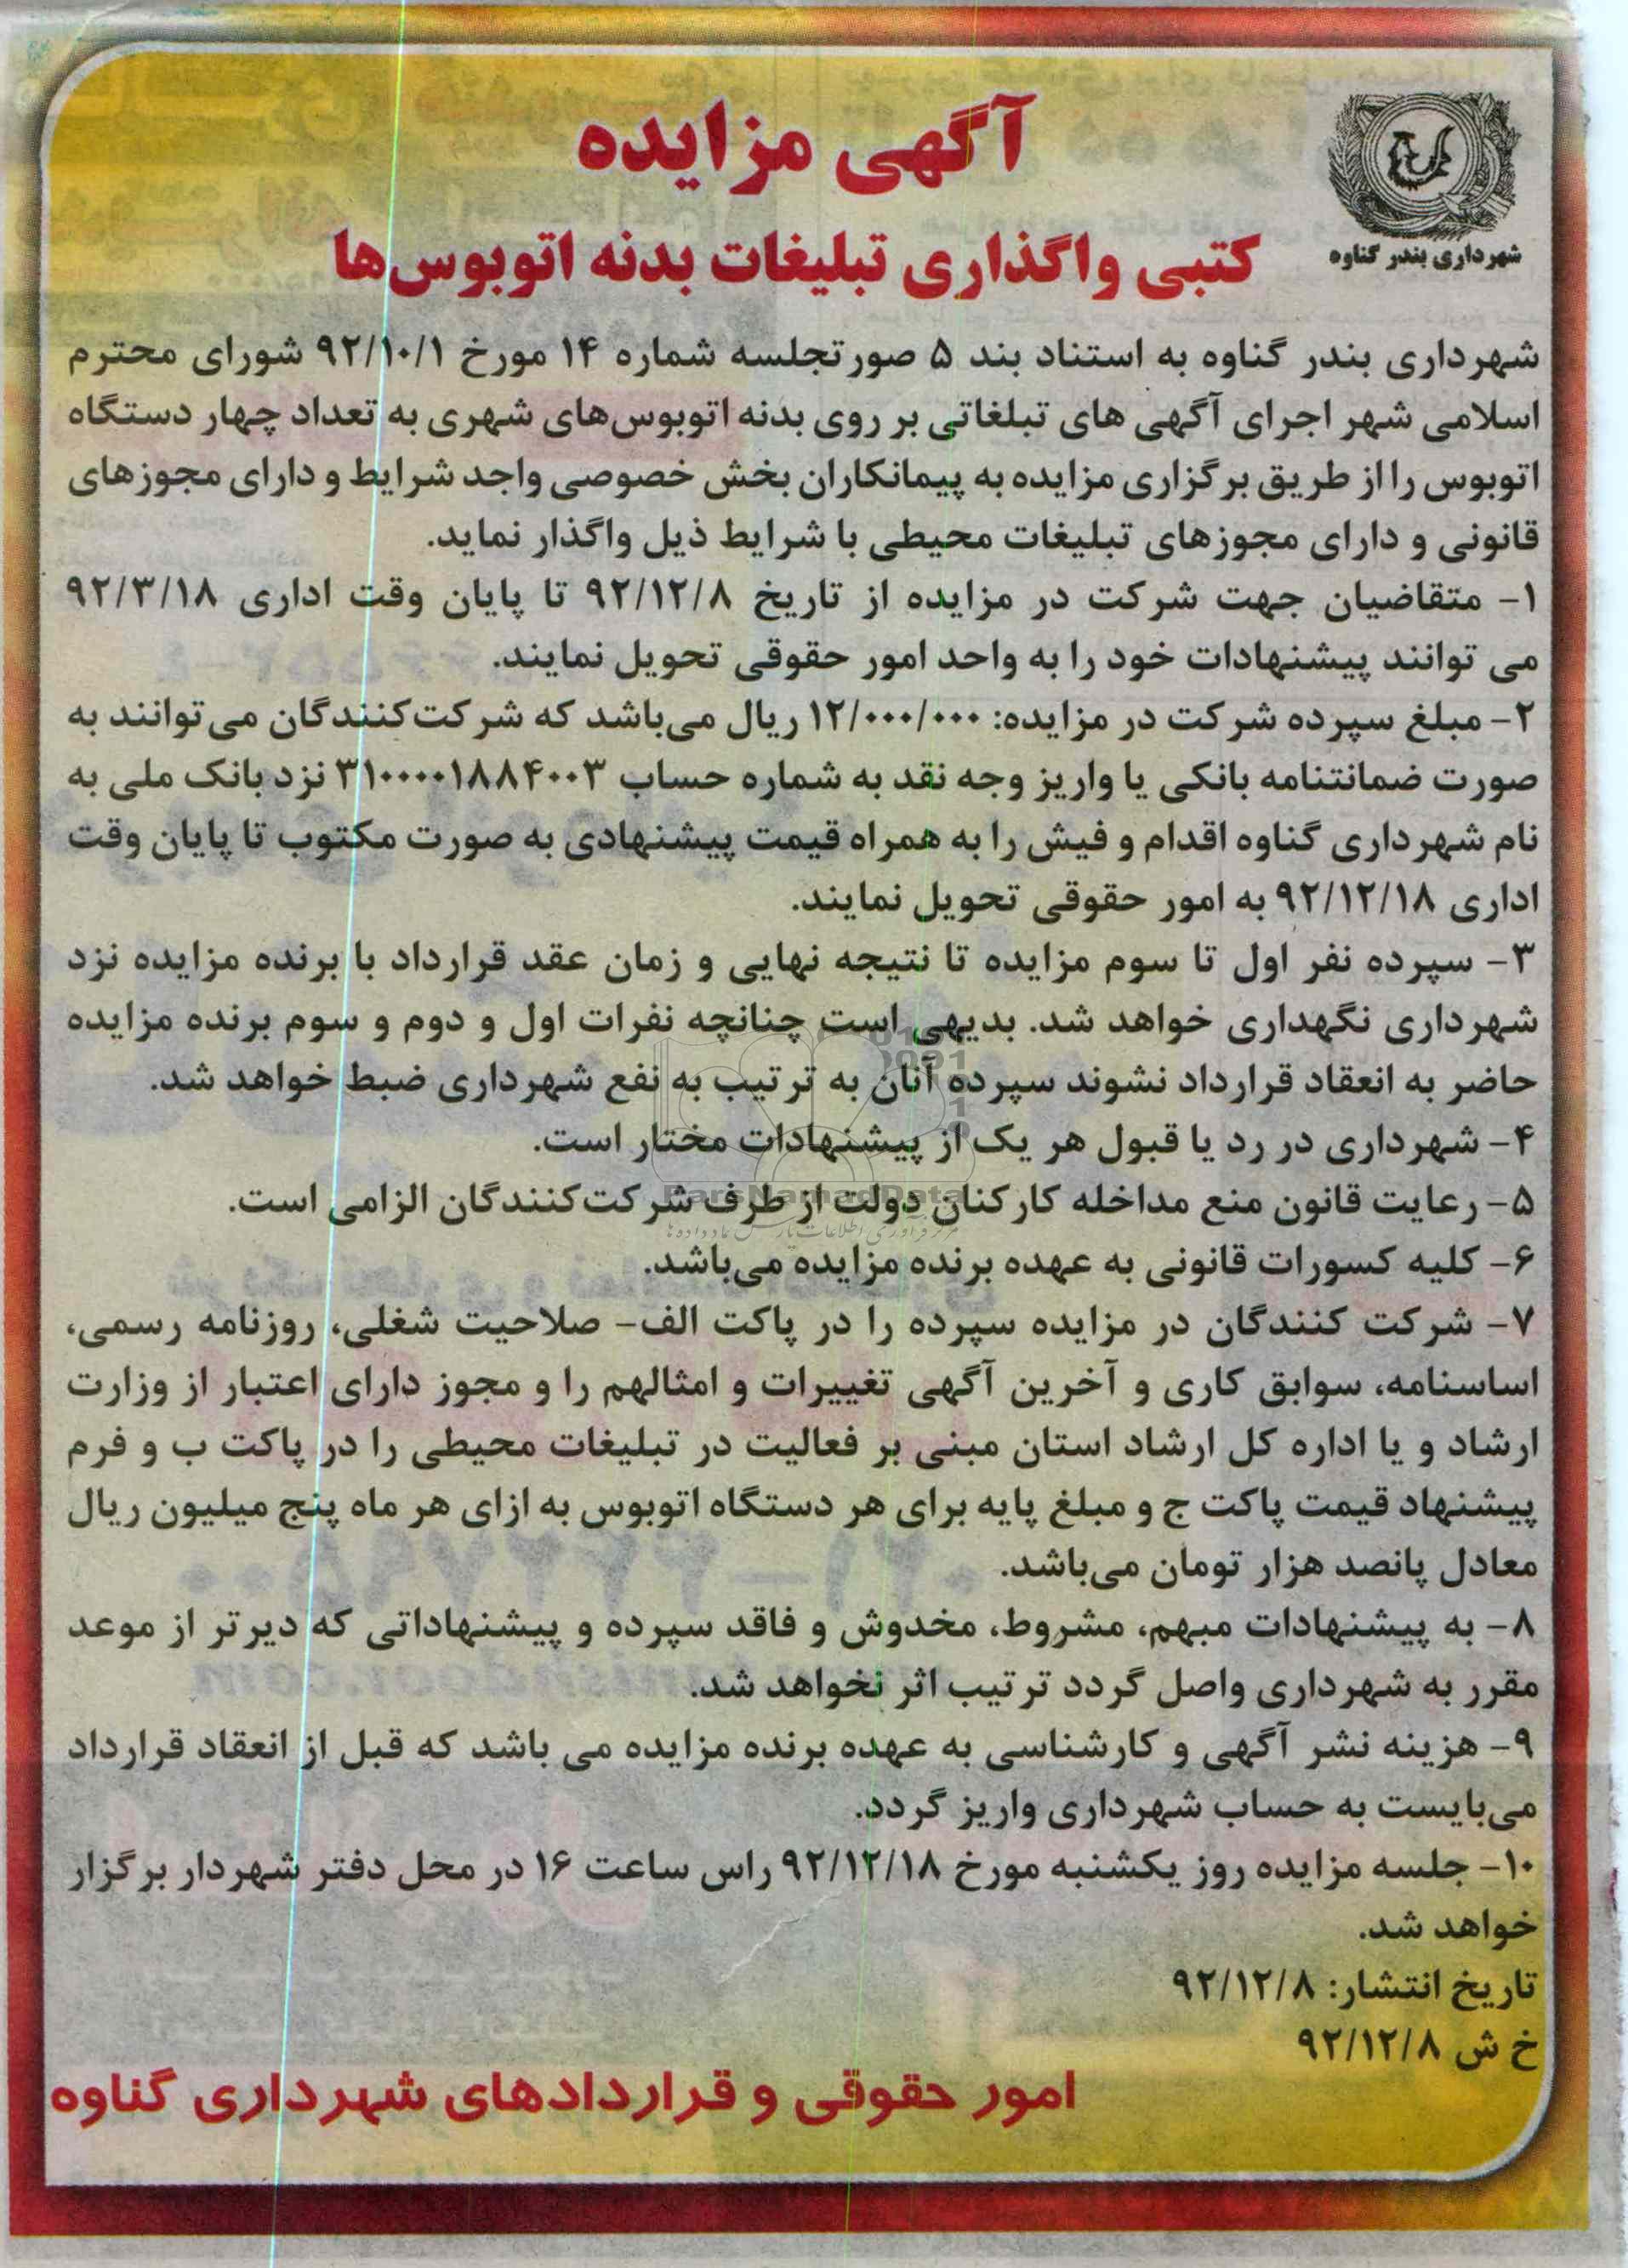 شهرداری بندر گناوه
آگهی مزایده
کتبی واگذاری تبلیغات بدنه اتوبوس‌ها
شهرداری بندر گناوه به استناد بند ۵ صورتجلسه شماره ۱۴ مورخ ۹۲/۱۰/۱ شورای محترم
اسلامی شهر اجرای آگهی های تبلغاتی بر روی بدنه اتوبوس‌های شهری به تعداد چهار دستگاه
اتوبوس را از طریق برگزاری مزایده به پیمانکاران بخش خصوصی واجد شرایط و دارای مجوزهای
قانونی و دارای مجوزهای تبلیغات محیطی با شرایط ذیل واگذار نماید.
۱- متقاضیان جهت شرکت در مزایده از تاریخ ۹۲/۱۲/۸ تا پایان وقت اداری ۹۲/۳/۱۸
می توانند پیشنهادات خود را به واحد امور حقوقی تحویل نمایند.
۲- مبلغ سپرده شرکت در مزایده: ۱۲/۰۰۰/۰۰۰ ریال می‌باشد که شرکت‌کنندگان می‌توانند به
صورت ضمانتنامه بانکی یا واریز وجه نقد به شماره حساب ۳۱۰۰۰۰۱۸۸۴۰۰۳ نزد بانک ملی به
نام شهرداری گناوه اقدام و فیش را به همراه قیمت پیشنهادی به صورت مکتوب تا پایان وقت
اداری ۹۲/۱۲/۱۸ به امور حقوقی تحویل نمایند.
۳- سپرده نفر اول تا سوم مزایده تا نتیجه نهایی و زمان عقد قرارداد با برنده مزایده نزد
شهرداری نگهداری خواهد شد. بدیهی است چنانچه نفرات اول و دوم و سوم برنده مزایده
حاضر به انعقاد قرارداد نشوند سپرده آنان به ترتیب به نفع شهرداری ضبط خواهد شد.
۴- شهرداری در رد یا قبول هر یک از پیشنهادات مختار است.
۵- رعایت قانون منع مداخله کارکنان دولت از طرف شرکت‌کنندگان الزامی است.
ParsNamadData
۶- کلیه کسورات قانونی به عهده برنده مزایده می‌باشد.
۷- شرکت کنندگان در مزایده سپرده را در پاکت الف- صلاحیت شغلی، روزنامه رسمی،
اساسنامه، سوابق کاری و آخرین آگهی تغییرات و امثالهم را و مجوز دارای اعتبار از وزارت
ارشاد و یا اداره کل ارشاد استان مبنی بر فعالیت در تبلیغات محیطی را در پاکت ب و فرم
پیشنهاد قیمت پاکت ج و مبلغ پایه برای هر دستگاه اتوبوس به ازای هر ماه پنج میلیون ریال
معادل پانصد هزار تومان می‌باشد.
۸- به پیشنهادات مبهم، مشروط، مخدوش و فاقد سپرده و پیشنهاداتی که دیرتر از موعد
مقرر به شهرداری واصل گردد ترتیب اثر نخواهد شد.
۹- هزینه نشر آگهی و کارشناسی به عهده برنده مزایده می باشد که قبل از انعقاد قرارداد
می‌بایست به حساب شهرداری واریز گردد.
۱۰- جلسه مزایده روز یکشنبه مورخ ۹۲/۱۲/۱۸ راس ساعت ۱۶ در محل دفتر شهردار برگزار
خواهد شد.
تاریخ انتشار: ۹۲/۱۲/۸
خ ش ۹۲/۱۲/۸
امور حقوقی و قراردادهای شهرداری گناوه